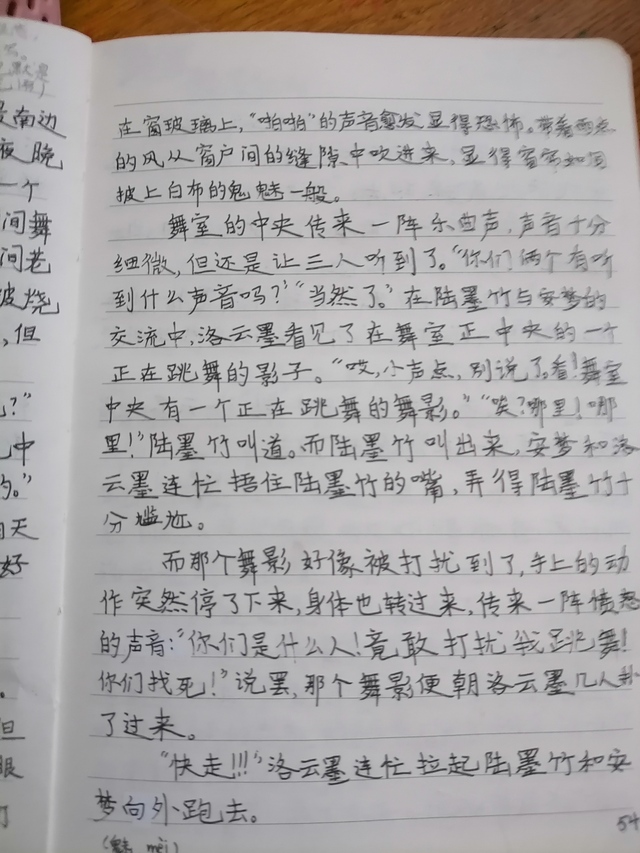 南边
夜晚
一个
间舞
间巷
被烧
,但
?”
中
的。”
天
好
但
眼
在窗玻璃上,“啪啪”的声音愈发显得恐怖。带着雨点
的风从窗户间的缝隙中吹进来,显得窗帘如同
披上白布的鬼魅一般。
舞室的中央传来一阵乐曲声,声音十分
细微,但还是让三人听到了。“你们俩个有听
到什么声音吗?”“当然了。”在陆墨竹与安梦的
交流中,洛云墨看见了在舞室正中央的一个
正在跳舞的影子。“哎,小声点,别说了。看!舞室
中央有一个正在跳舞的舞影。”“诶?哪里!哪
里!”陆墨竹叫道。而陆墨竹叫出来,安梦和洛
云墨连忙捂住陆墨竹的嘴,弄得陆墨竹十
分尴尬。
而那个舞影好像被打扰到了,手上的动
作突然停了下来,身体也转过来,传来一阵愤怒
的声音:“你们是什么人!竟敢打扰我跳舞!
你们找死!”说罢,那个舞影便朝洛云墨几人扑
了过来。
“快走!!!”洛云墨连忙拉起陆墨竹和安
梦向外跑去。
54
(魅 mèi)